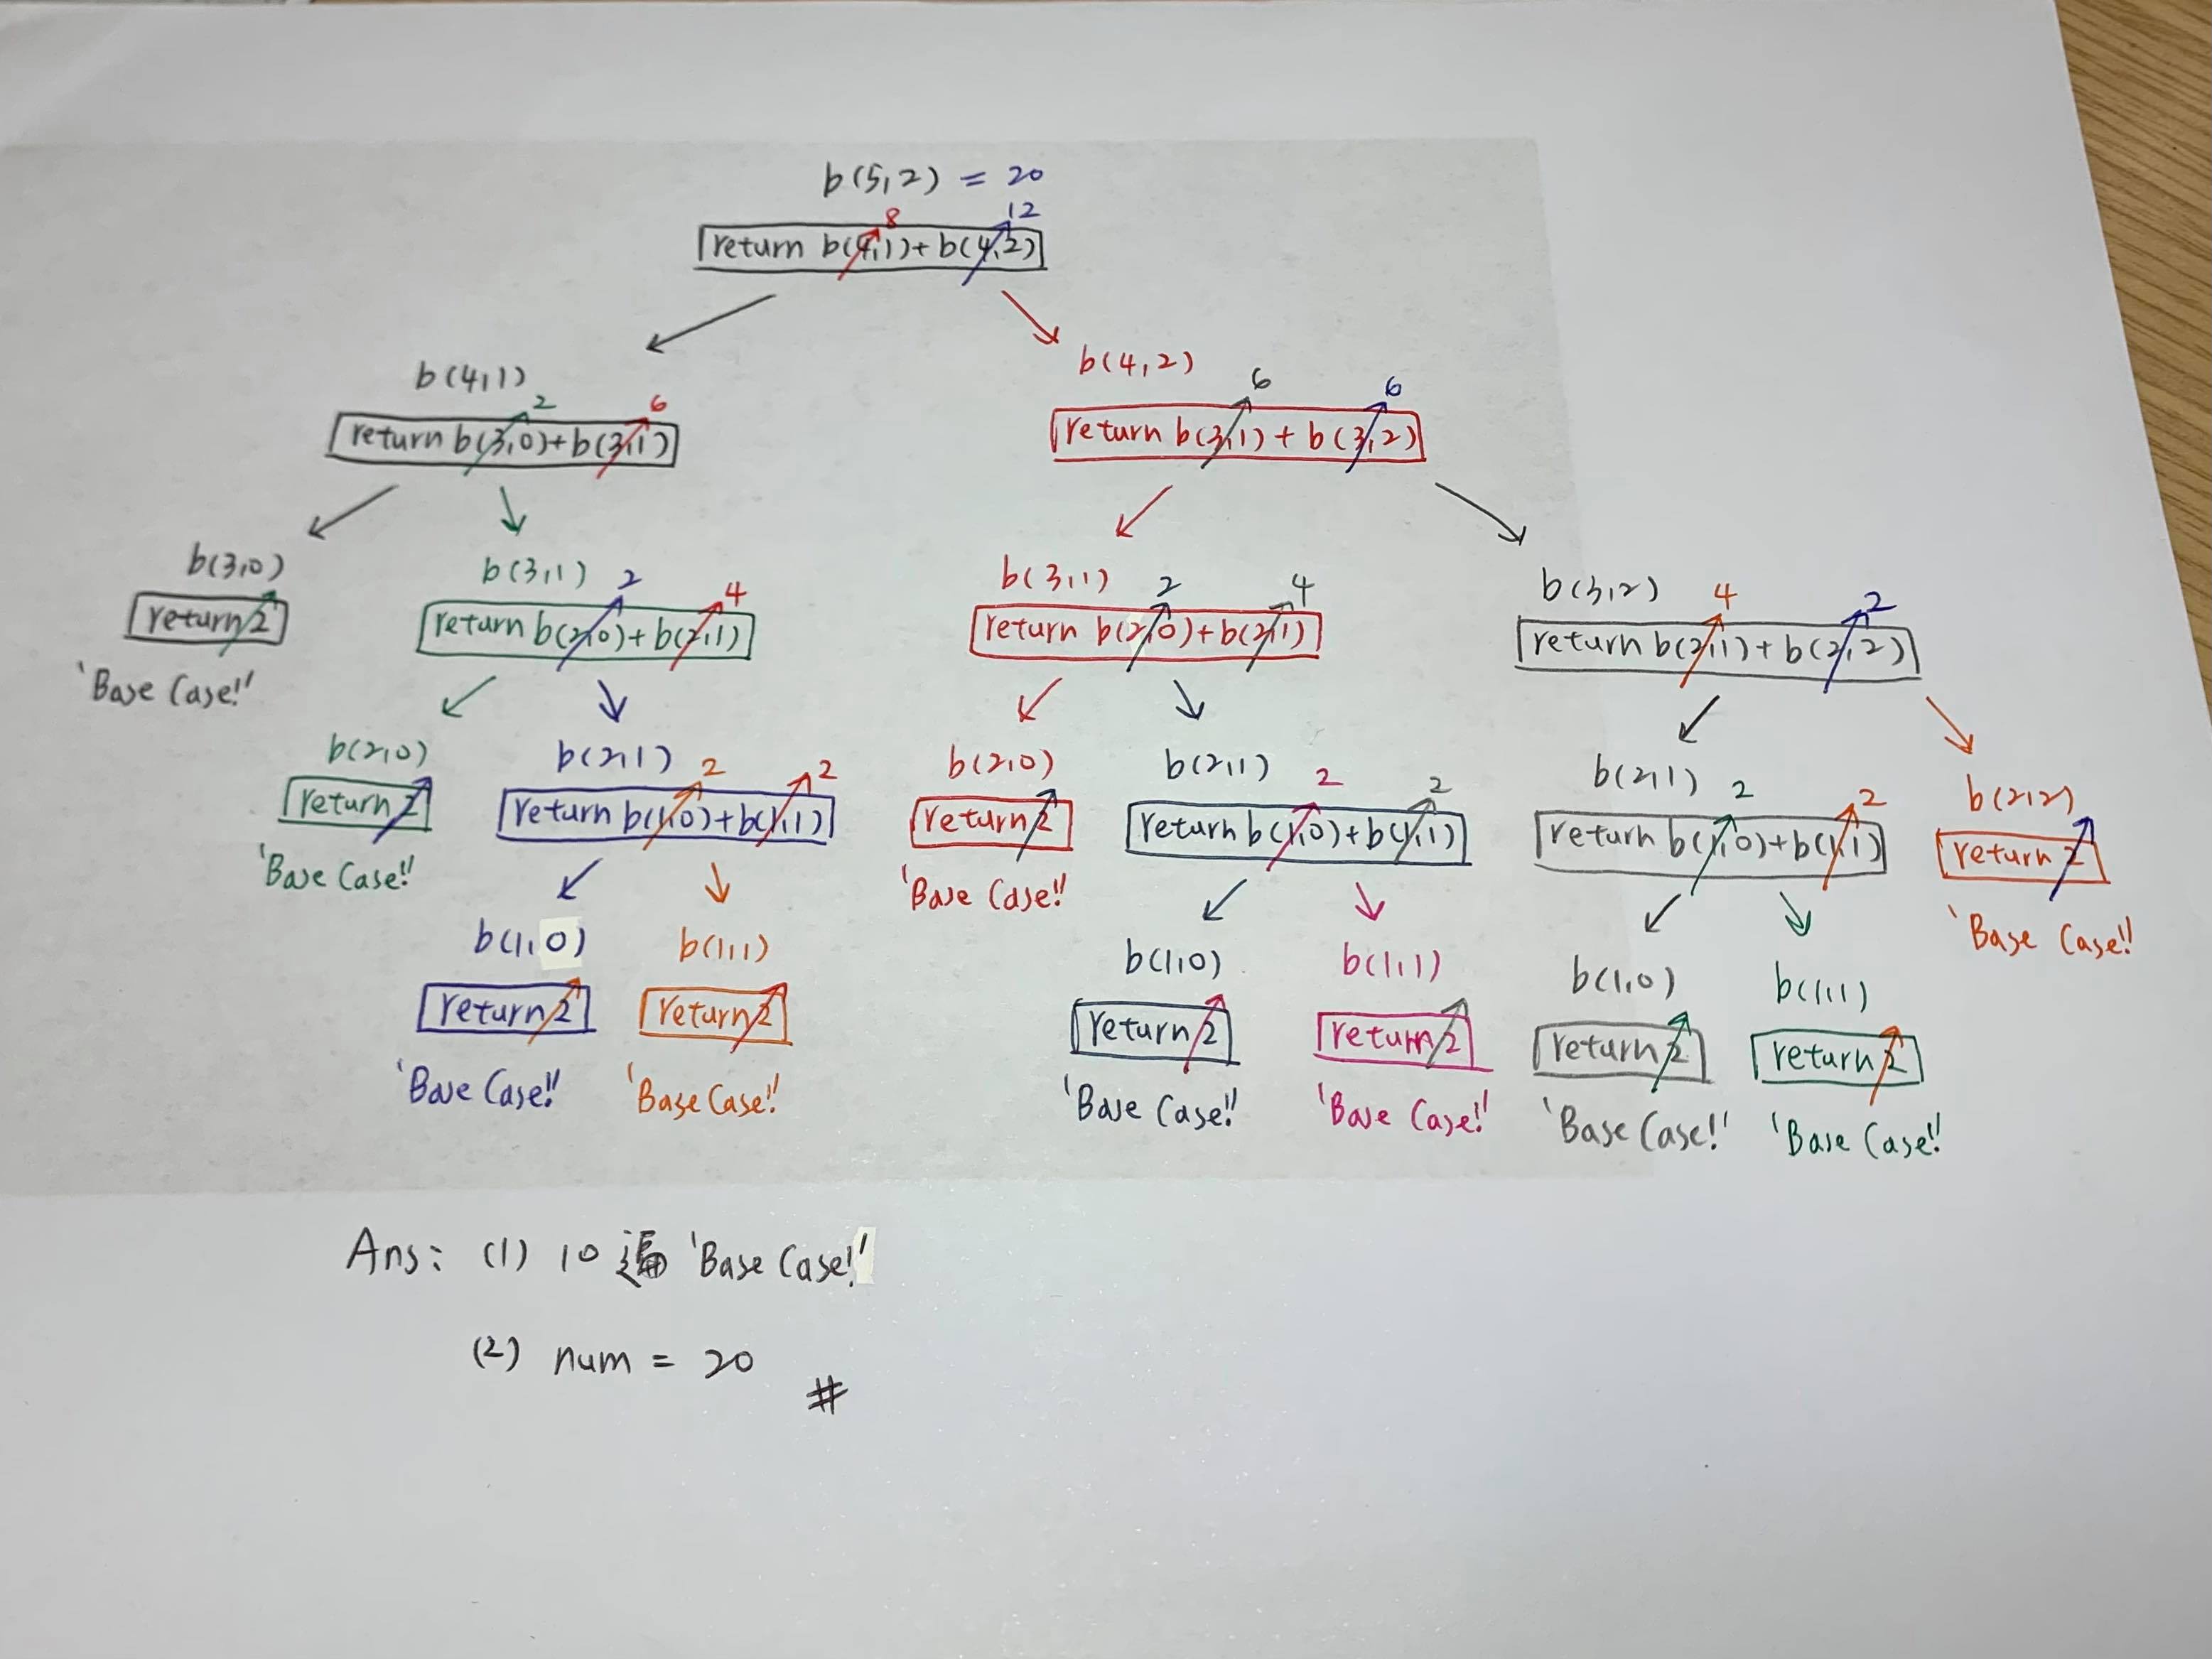 b(5,2) = 20
8 12
return b(4,1)+b(4,2)
b(4,1)
2 6
return b(3,0)+b(3,1)
b(4,2)
6 6
return b(3,1) + b(3,2)
b(3,0)
return 2
'Base Case!'
b(3,1)
2 4
return b(2,0)+b(2,1)
b(3,1)
2 4
return b(2,0)+b(2,1)
b(3,2)
4 2
return b(2,1)+b(2,2)
b(2,0)
return 2
'Base Case!'
b(2,1)
2 2
return b(1,0)+b(1,1)
b(2,0)
return 2
'Base Case!'
b(2,1)
2 2
return b(1,0)+b(1,1)
b(2,1)
2 2
return b(1,0)+b(1,1)
b(2,2)
return 2
'Base Case!'
b(1,0)
return 2
'Base Case!'
b(1,1)
return 2
'Base Case!'
b(1,0)
return 2
'Base Case!'
b(1,1)
return 2
'Base Case!'
b(1,0)
return 2
'Base Case!'
b(1,1)
return 2
'Base Case!'
Ans: (1) 10 遍 'Base Case!'
(2) num = 20
#